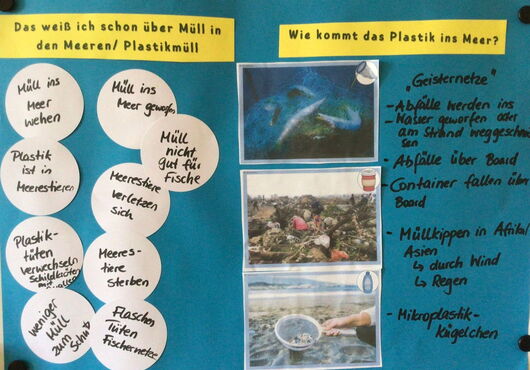 Das weiß ich schon über Müll in
den Meeren/ Plastikmüll
Müll ins
Meer
wehen
Müll ins
Meer geworfen
Müll
nicht
gut für
Fische
Plastik
ist in
Meerestieren
Meerestiere
verletzen
sich
Plastik-
tüten
verwechseln
Schildkröten
mit
Meeres-
tiere
sterben
weniger
Müll
zum
Flaschen
Tüten
Fischernetze
Wie kommt das Plastik ins Meer?
„Geisternetze"
- Abfälle werden ins
Wasser geworfen oder
am Strand weggeschmis-
sen
- Abfälle über Board
- Container fallen über
Board
- Müllkippen in Afrika/
Asien
↳ durch Wind
↳ Regen
- Mikroplastik-
kügelchen